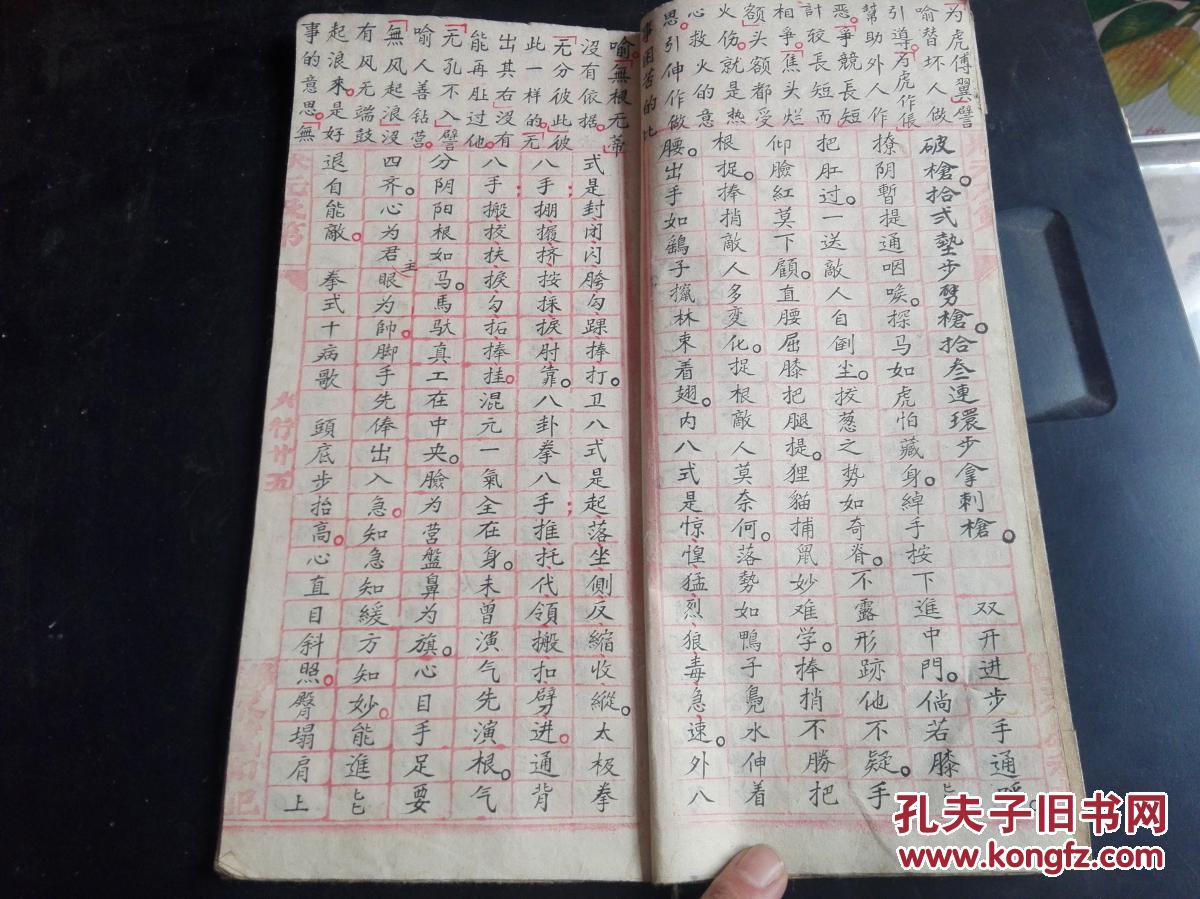 为虎傅翼"譬
喻替坏人做
引導。"为虎作伥
幫助外人作
恶。"争競長短
計较長短而
相爭。"焦头烂
额"头额都受
火伤就是热
心救火的意
思。引伸作做
事困苦的比
破槍。拾弍墊步劈槍。拾叁連環步拿刺槍。 双开进步手通
撩阴暫提通咽喉。探马如虎怕藏身。绰手按下進中門。倘若膝
把肛过。一送敵人自倒尘。拔葱之势如奇脊。不露形跡他不疑。手
仰臉紅莫下顧。直腰屈膝把腿提。狸貓捕鼠妙难学。捧捎不勝把
根捉。捧捎敵人多変化。捉根敵人莫奈何。落勢如鴨子鳧水伸着
腰。出手如鷂子攛林束着翅。内八式是惊惶猛烈狼毒急速。外八
喻。"無根无蒂
沒有依据。
"无分彼此"彼
此一样的。"无
出其右"沒有
能再扯过他。
"无孔不入"譬
喻人善钻营。
"無风起浪"沒
有风无端鼓
起浪来是好
事的意思。"無
式是封、闭、闪、胯、勾、踝、捧、打。卫八式是起、落、坐、侧、反、縮、收、縱。太极拳
八手;掤、攦、挤、按、採、捩、肘、靠。八卦拳八手;推、托、代、領、搬、扣、劈、进。通背
八手、搬、拨、扶、捩、勾、拓、捧、挂。混元一氣全在身。未曾演气先演根。气
分阴阳根如马。馬驮真工在中央。臉为营盤鼻为旗。心目手足要
四齐。心为君主眼为帥。脚手先俸出入急。知急知緩方知妙。能進
退自能敵。 拳式十病歌 頭底步抬高。心直目斜照。臀塌肩上
六行廿五
孔夫子旧书网
www.kongfz.com